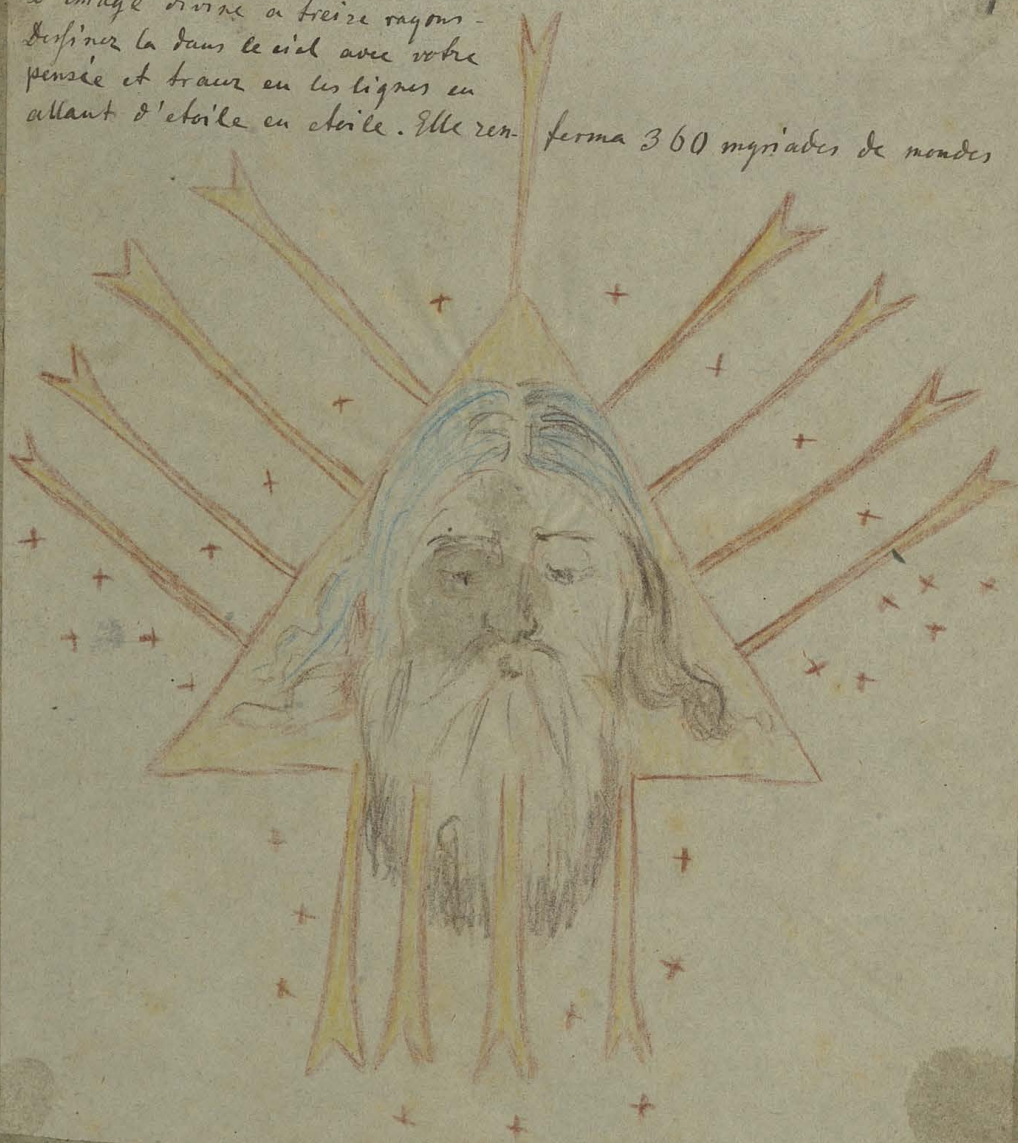 image divine a treize rayons -
Dessinez la dans le ciel avec votre
pensée et tracez en les lignes en
allant d'etoile en etoile. Elle ren- ferma 360 myriades de mondes